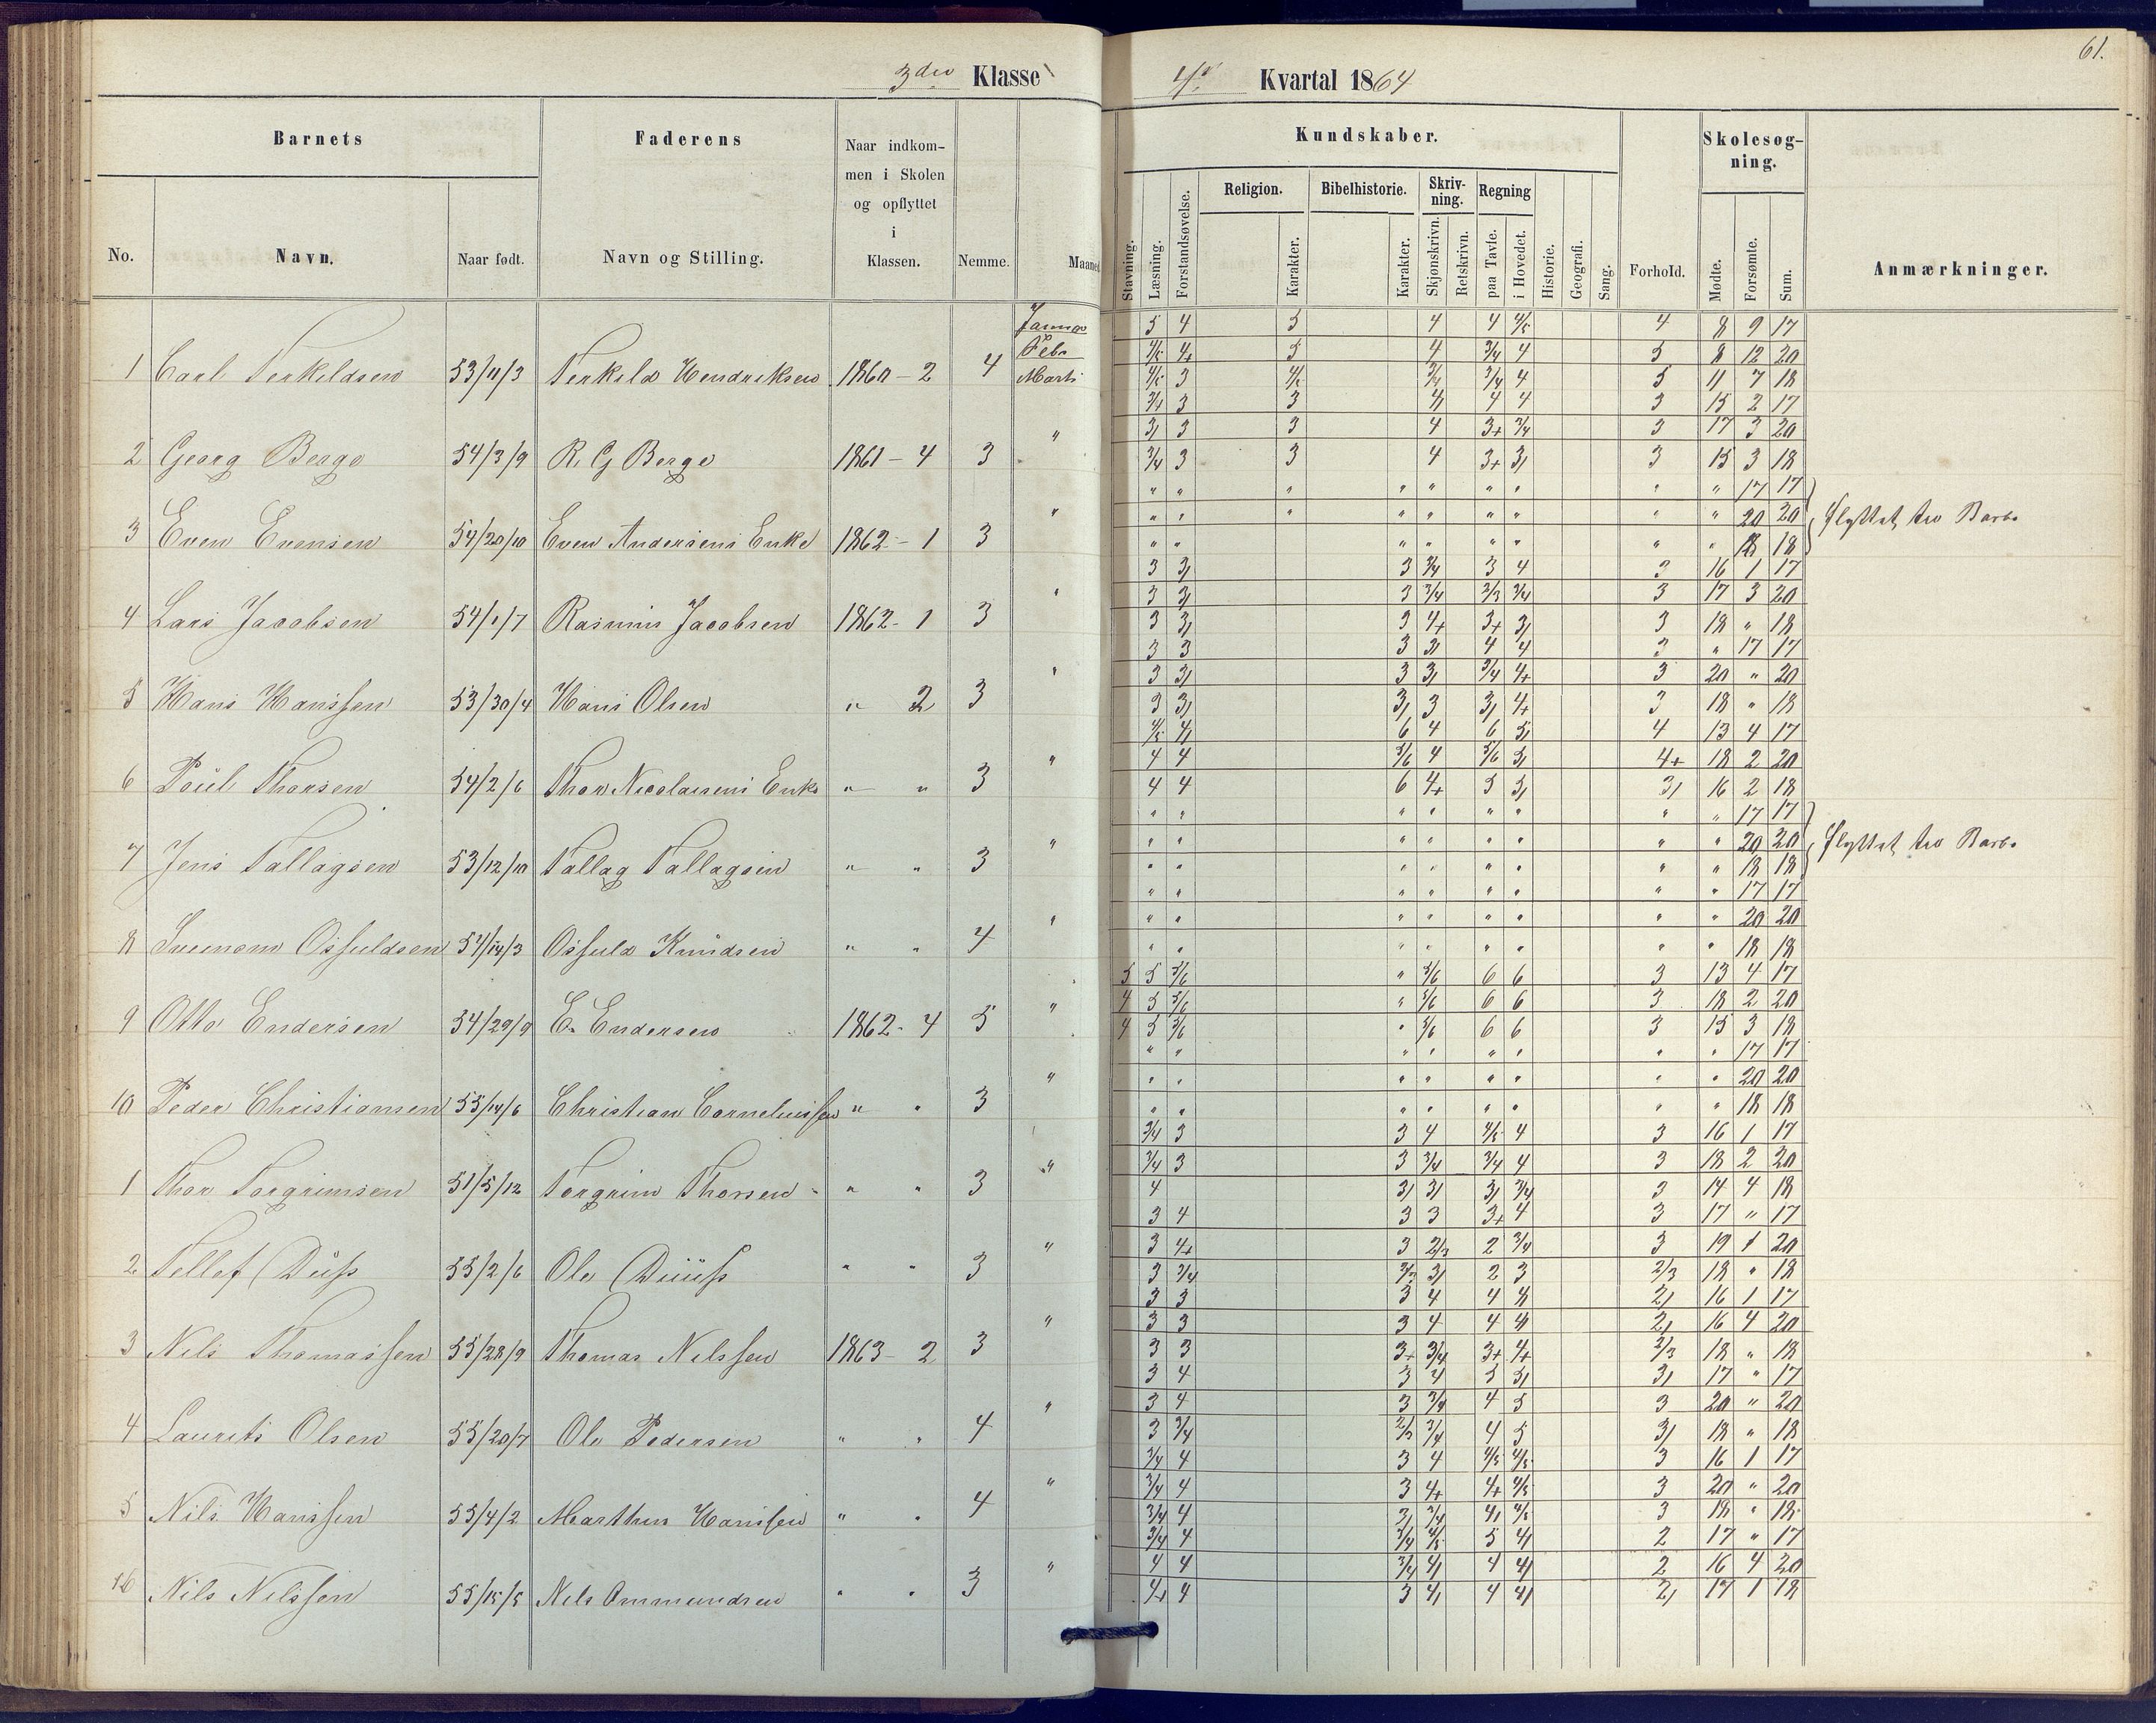 61.
3die Klasse
Kvartal 1864
Barnets
Faderens
Naar indkom-
men i Skolen
og opflyttet
i
Klassen.
No.
Navn.
Naar født.
Navn og Stilling.
Nemme.
Maaned
Kundskaber.
Stavning.
Læsning.
Forstandsøvelse.
Religion.
Karakter.
Bibelhistorie.
Karakter.
Skriv-
ning.
Skjønskrivn.
Retskrivn.
Regning
paa Tavle.
i Hovedet.
Historie.
Geografi.
Sang.
Forhold.
Skolesøg-
ning.
Mødte.
Forsømte.
Sum.
Anmærkninger.
Januar
Febr
Marts
1 Carl Terkildsen 53/11/3 Terkild Hendriksen 1860 - 2 4
2 Georg Berge 54/3/9 R. G Berge 1861 - 4 3 "
3 Even Evensen 54/20/10 Even Andersens Enke 1862 - 1 3 "
4 Lars Jacobsen 54/1/7 Rasmus Jacobsen 1862 - 1 3 "
5 Hans Hanssen 53/30/4 Hans Olsen " 2 3 "
6 Poul Thorsen 54/2/6 Thor Nicolaisens Enke " " 3 "
7 Jens Tallagsen 53/12/10 Tallag Tallagsen " " 3 "
8 Osfuldsen 54/14/3 Osfuld Knudsen " " 4 "
9 Otto Endersen 54/29/9 E. Endersen 1862 - 4 5 "
10 Peder Christiansen 55/14/6 Christian Corneliussen " " 3 "
1 Thor Torgrimsen 51/5/12 Torgrim Thorsen " " 3 "
2 Tellef Duss 55/2/6 Ole Duuss " " 3 "
3 Nils Thomassen 55/28/9 Thomas Nilssen 1863 - 2 3 "
4 Laurits Olsen 55/20/7 Ole Pedersen " " 4 "
5 Nils Hanssen 55/4/2 Marthin Hanssen " " 4 "
16 Nils Nilssen 55/15/5 Nils Ommundsen " " 3 "
5 4 5 4 4 4/5 4 8 9 17
4/5 4+ 5 4 3/4 4 5 8 12 20
4/5 3 4/5 3/4 3/4 4 5 11 7 18
3/4 3 3 4/ 4 4 3 15 2 17
3/ 3 3 4 3+ 3/4 3 17 3 20
3/4 3 3 4 3+ 3/ 3 15 3 18
" " " " " " " " " 17 17
" " " " " " " " " 20 20
" " " " " " " " 18 18
flyttet til Barbo
3 3/ 3 3/4 3 4 3 16 1 17
3 3/ 3 3/4 2/3 3/4 3 17 3 20
3 3/ 3 4+ 3+ 3/ 3 18 " 18
3 3 3 3/ 4 4 3 " 17 17
3 3/ 3 3/ 3/4 4+ 3 20 " 20
3 3/ 3/ 3 3/ 4+ 3 18 " 18
4/5 4/ 6 4 6 5/ 4 13 4 17
4 4 5/6 4 5/6 5/ 4+ 18 2 20
4 4 6 4+ 5 5/ 3/ 16 2 18
" " " " " " " " 17 17
" " " " " " " " 20 20
" " " " " " " " 18 18
flyttet til Barbo
" " " " " " " " 17 17
" " " " " " " " 20 20
" " " " " " " " 18 18
5 5 5/6 " 5/6 6 6 3 13 4 17
4 5 5/6 " 5/6 6 6 3 18 2 20
4 5 5/6 " 5/6 6 6 3 15 3 18
" " " " " " " " 17 17
" " " " " " " " 20 20
" " " " " " " " 18 18
3/4 3 3 4 4/5 4 3 16 1 17
3/4 3 3 3/4 3/4 4 3 18 2 20
4 3/ 3/ 3/ 3/4 3 14 4 18
3 4 3 3 3+ 4 3 17 " 17
3 4+ 3 2/3 2 3/4 3 19 1 20
3 3/4 2/3 3/ 2 3 2/3 18 " 18
3 3 3 4 4 4/ 2/ 16 1 17
3 3 3 4 4 4/ 2/ 16 4 20
3 3 3+ 3/4 3+ 4+ 2/3 18 " 18
3 4 3 4 5 5/ 3/ 17 " 17
3 4 3 3/4 4 5 3 20 " 20
3 3/4 2/3 3/4 4 5 3/ 18 " 18
3/4 4 3 4 4/5 4/5 3 16 1 17
3/4 4 3 4+ 4+ 4/5 3 20 " 20
3/4 4 3/ 3/4 4/ 4/5 3 18 " 18
3/4 4 3/4 4/5 5 4/ 2 17 " 17
4 4 3/4 4/ 4 4/ 2 16 4 20
4+ 4 3 4/ 4 4/ 2/ 17 1 18